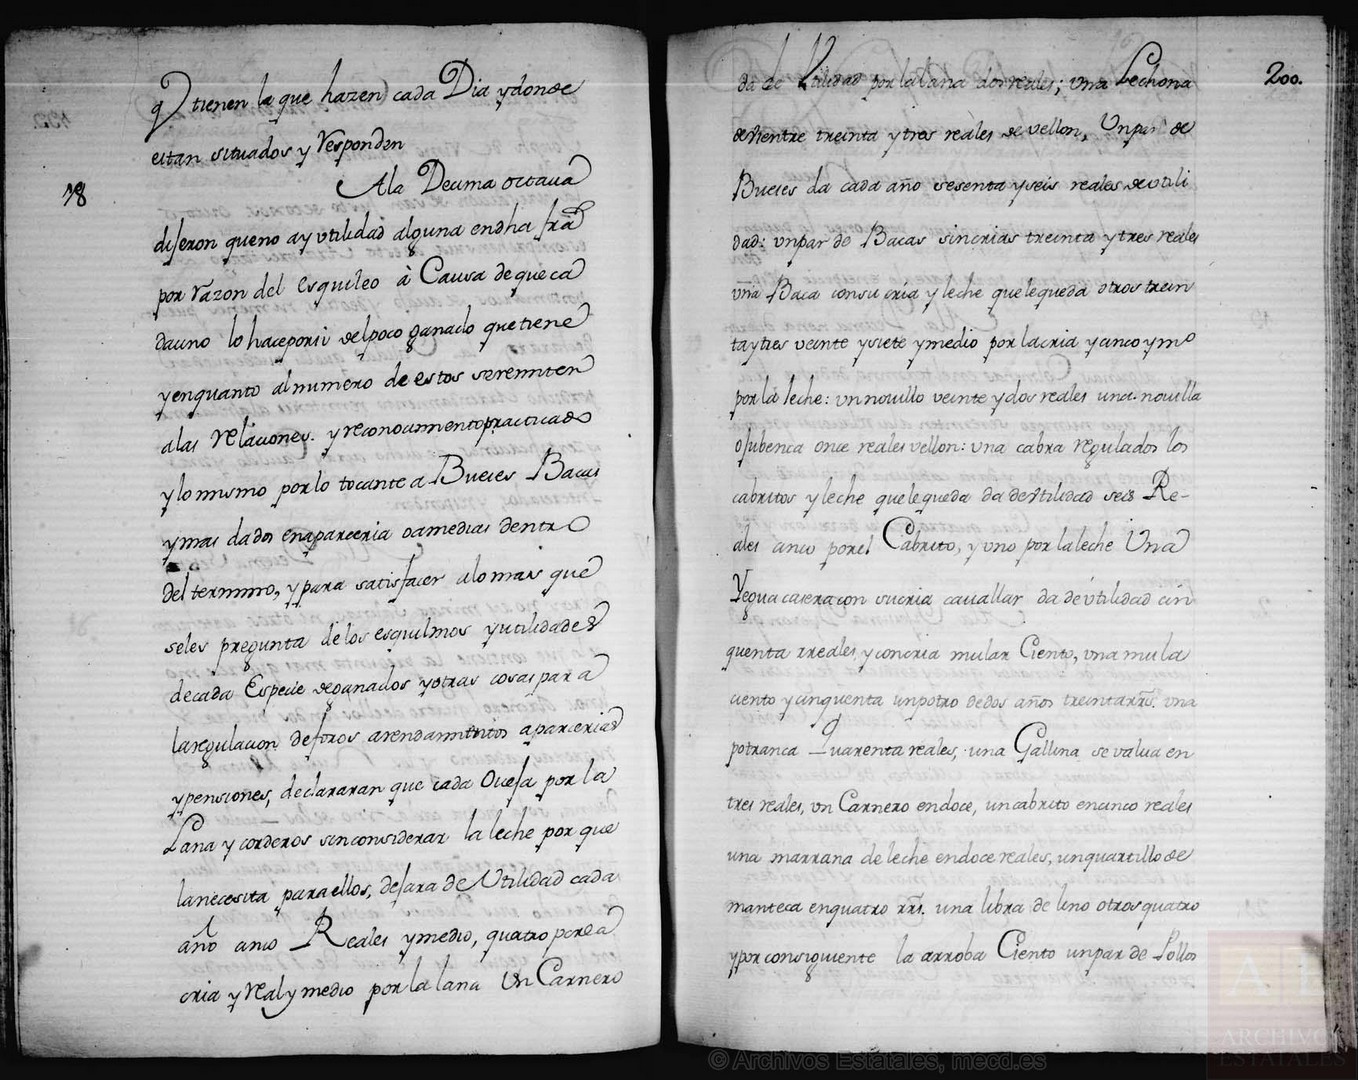 q.e tienen la que hazen cada Dia y donde
estan situados y Responden
18
A la Decima octava
dijeron que no ay utilidad alguna en dha frã
por razon del esquileo à Causa de que ca
da uno lo hace por si del poco ganado que tiene
y en quanto al numero de estos se remiten
a las relaciones. y reconocimiento practicado
y lo mismo por lo tocante a Bueies Bacas
y mas dados en aparceria o a medias dentro
del termino, y para satisfacer a lo mas que
se les pregunta de los esquilmos y utilidades
de cada Especie de ganados y otras cosas para
la regulacion de foros arendamientos aparcerias
y pensiones, declararan que cada Oveja por la
Lana y corderos sin considerar la leche por que
la necesita para ellos, dejara de Utilidad cada
año cinco Reales y medio, quatro por la
cria y real y medio por la lana Un Carnero
200.
da de Utilidad por la lana dos reales; una Lechona
de vientre treinta y tres reales de vellon, Un par de
Bueies da cada año sesenta y seis reales de utili
dad: un par de Bacas sin crias treinta y tres reales
una Baca con su cria y leche que le queda otros trein
ta y tres veinte y siete y medio por la cria y cinco y mº
por la leche: un novillo veinte y dos reales una novilla
o jubenca once reales vellon: una cabra regulados los
cabritos y leche que le queda da de utilidad seis Re-
ales cinco por el Cabrito, y uno por la leche Una
Yegua casera con su cria cavallar da de utilidad cin
quenta rreales, y con cria mular Ciento, una mula
ciento y cinquenta un potro de dos años treinta rrs. una
potranca Quarenta reales, una Gallina se valua en
tres reales, un Carnero en doce, un cabrito en cinco reales
una marrana de leche en doce reales, un quartillo de
manteca en quatro rrs. una libra de lino otros quatro
y por consiguiente la arroba Ciento un par de Pollos
© Archivos Estatales, mecd.es
AE
ARCHIVOS
ESTATALES